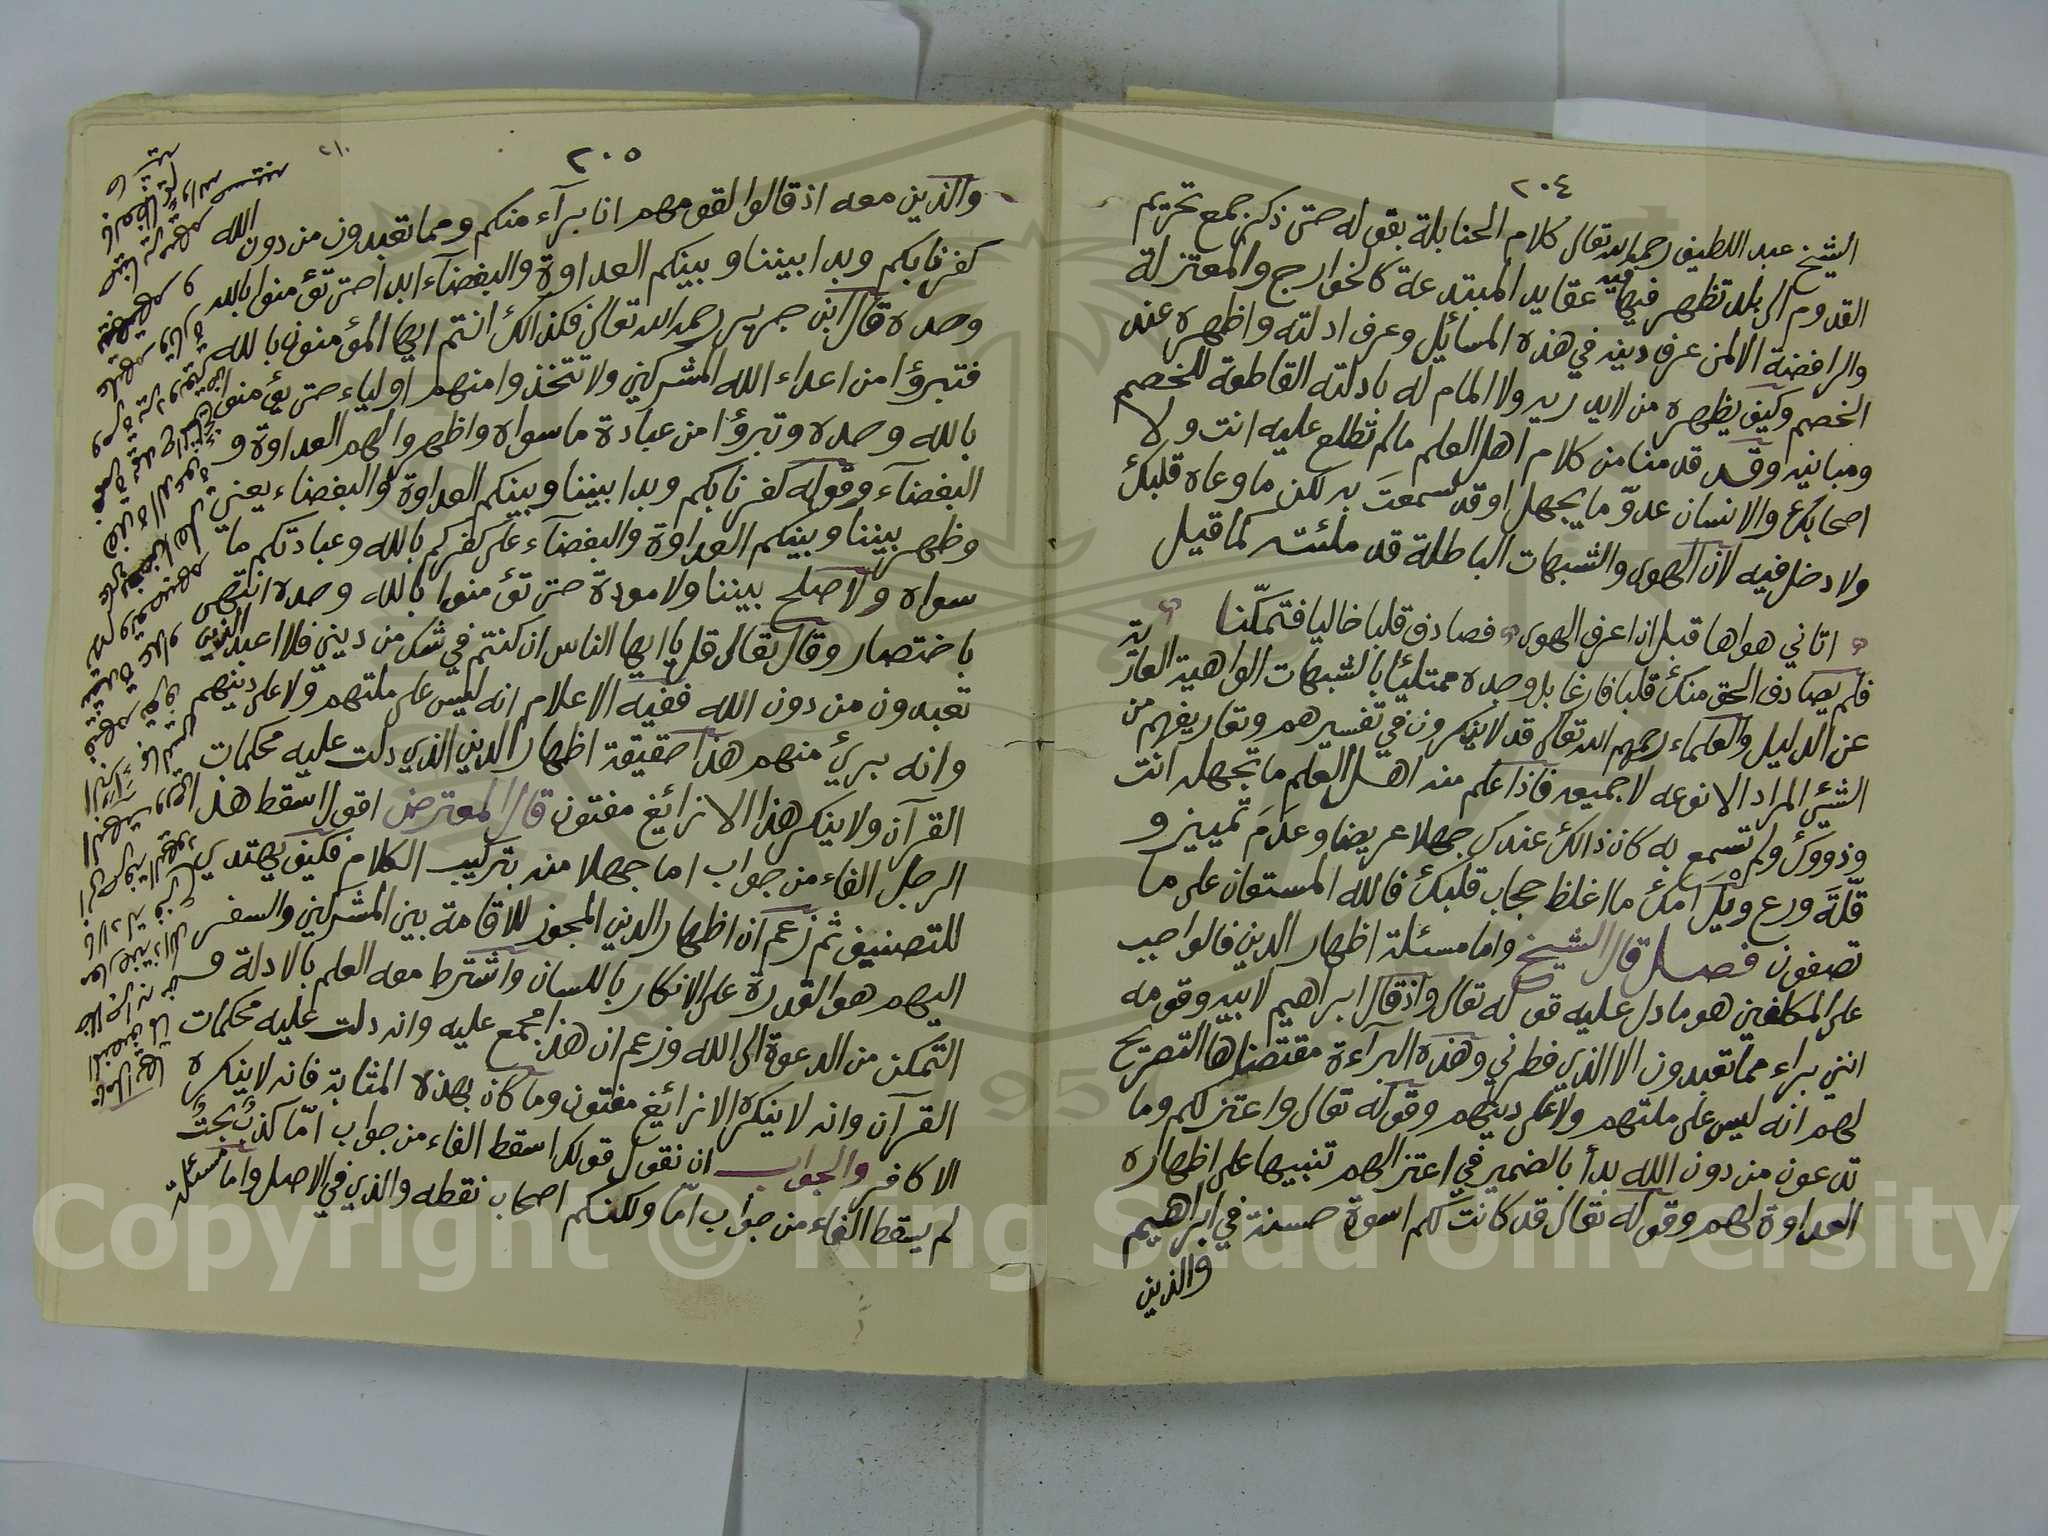 ٢٠٤
الشيخ عبد اللطيف رحمه الله تعالى كلام الحنابلة بقوله حتى ذكر جمع تحريم
القدوم الى بلد تظهر فيها عقايد المبتدعة كالخوارج والمعتزلة
والرافضة الا لمن عرف دينه في هذه المسائل وعرف ادلته واظهره عند
الخصم وكيف يظهره من لا يدريه ولا المام له بادلته القاطعة للخصم
ومبانيه وقد قدمنا من كلام اهل العلم ما لم تطلع عليه انت ولا
اصحابك والانسان عدوّ ما يجهل او قد سمعت به لكن ما وعاه قلبك
ولا دخل فيه لان الهوى والشبهات الباطلة قد ملئته كما قيل
اتاني هواها قبل ان اعرف الهوى فصادف قلبا خاليا فتمكّنا
فلم يصادف الحق منك قلبا فارغا بل وجده ممتلئا بالشبهات الواهية العارية
عن الدليل والعلماء رحمهم الله تعالى قد لا يذكرون في تفسيرهم وتعاريفهم من
الشئ المراد الا نوعه لا جميعه فاذا علم منه اهل العلم ما تجهله انت
وذووك ولم تسمع به كان ذالك عندك جهلا عريضا وعدم تمييز و
قلّة ورع ويل امك ما اغلظ حجاب قلبك فالله المستعان على ما
تصفون فصل قال الشيخ واما مسئلة اظهار الدين فالواجب
على المكلفين هو ما دل عليه قوله تعالى واذ قال ابراهيم لابيه وقومه
انني براء مما تعبدون الا الذي فطرني وهذه البراءة مقتضاها التصريح
لهم انه ليس على ملتهم ولا على دينهم وقوله تعالى واعتزلكم وما
تدعون من دون الله بدأ بالضمير في اعتزالهم تنبيها على اظهاره
العداوة لهم وقوله تعالى قد كانت لكم اسوة حسنة في ابراهيم
والذين
٢٠٥
٢١٠
والذين معه اذ قالوا لقومهم انا برآء منكم ومما تعبدون من دون الله
كفرنا بكم وبدا بيننا وبينكم العداوة والبغضآء ابدا حتى تؤمنوا بالله
وحده قال ابن جرير رحمه الله تعالى فكذالك انتم ايها المؤمنون بالله
فتبرؤا من اعداء الله المشركين ولا تتخذوا منهم اولياء حتى يؤمنوا
بالله وحده وتبرؤا من عبادة ما سواه واظهروا لهم العداوة و
البغضآء وقوله كفرنا بكم وبدا بيننا وبينكم العداوة والبغضاء يعني
وظهر بيننا وبينكم العداوة والبغضآء على كفركم بالله وعبادتكم ما
سواه ولا صلح بيننا ولا مودة حتى تؤمنوا بالله وحده انتهى
باختصار وقال تعالى قل يا ايها الناس ان كنتم في شك من ديني فلا اعبد الذين
تعبدون من دون الله ففيه الاعلام انه ليس على ملتهم ولا على دينهم
وانه برئ منهم هذا حقيقة اظهار الدين الذي دلت عليه محكمات
القرآن ولا ينكر هذا الا زائغ مفتون قال المعترض اقول اسقط هذا
الرجل الفاء من جواب اما جهلا منه بتركيب الكلام فكيف يهتدي
للتصنيف ثم زعم ان اظهار الدين المجوز للاقامة بين المشركين والسفر
اليهم هو القدرة على الانكار باللسان واشترط معه العلم بالادلة و
التمكن من الدعوة الى الله وزعم ان هذا مجمع عليه وانه دلت عليه محكمات
القرآن وانه لا ينكره الا زائغ مفتون وما كان بهذه المثابة فانه لا ينكره
الا كافر والجواب ان نقول قولك اسقط الفاء من جواب امّا كذب بحت
لم يسقط الفاء من جواب امّا ولكنكم اصحاب نقطه والذي في الاصل واما مسئلة